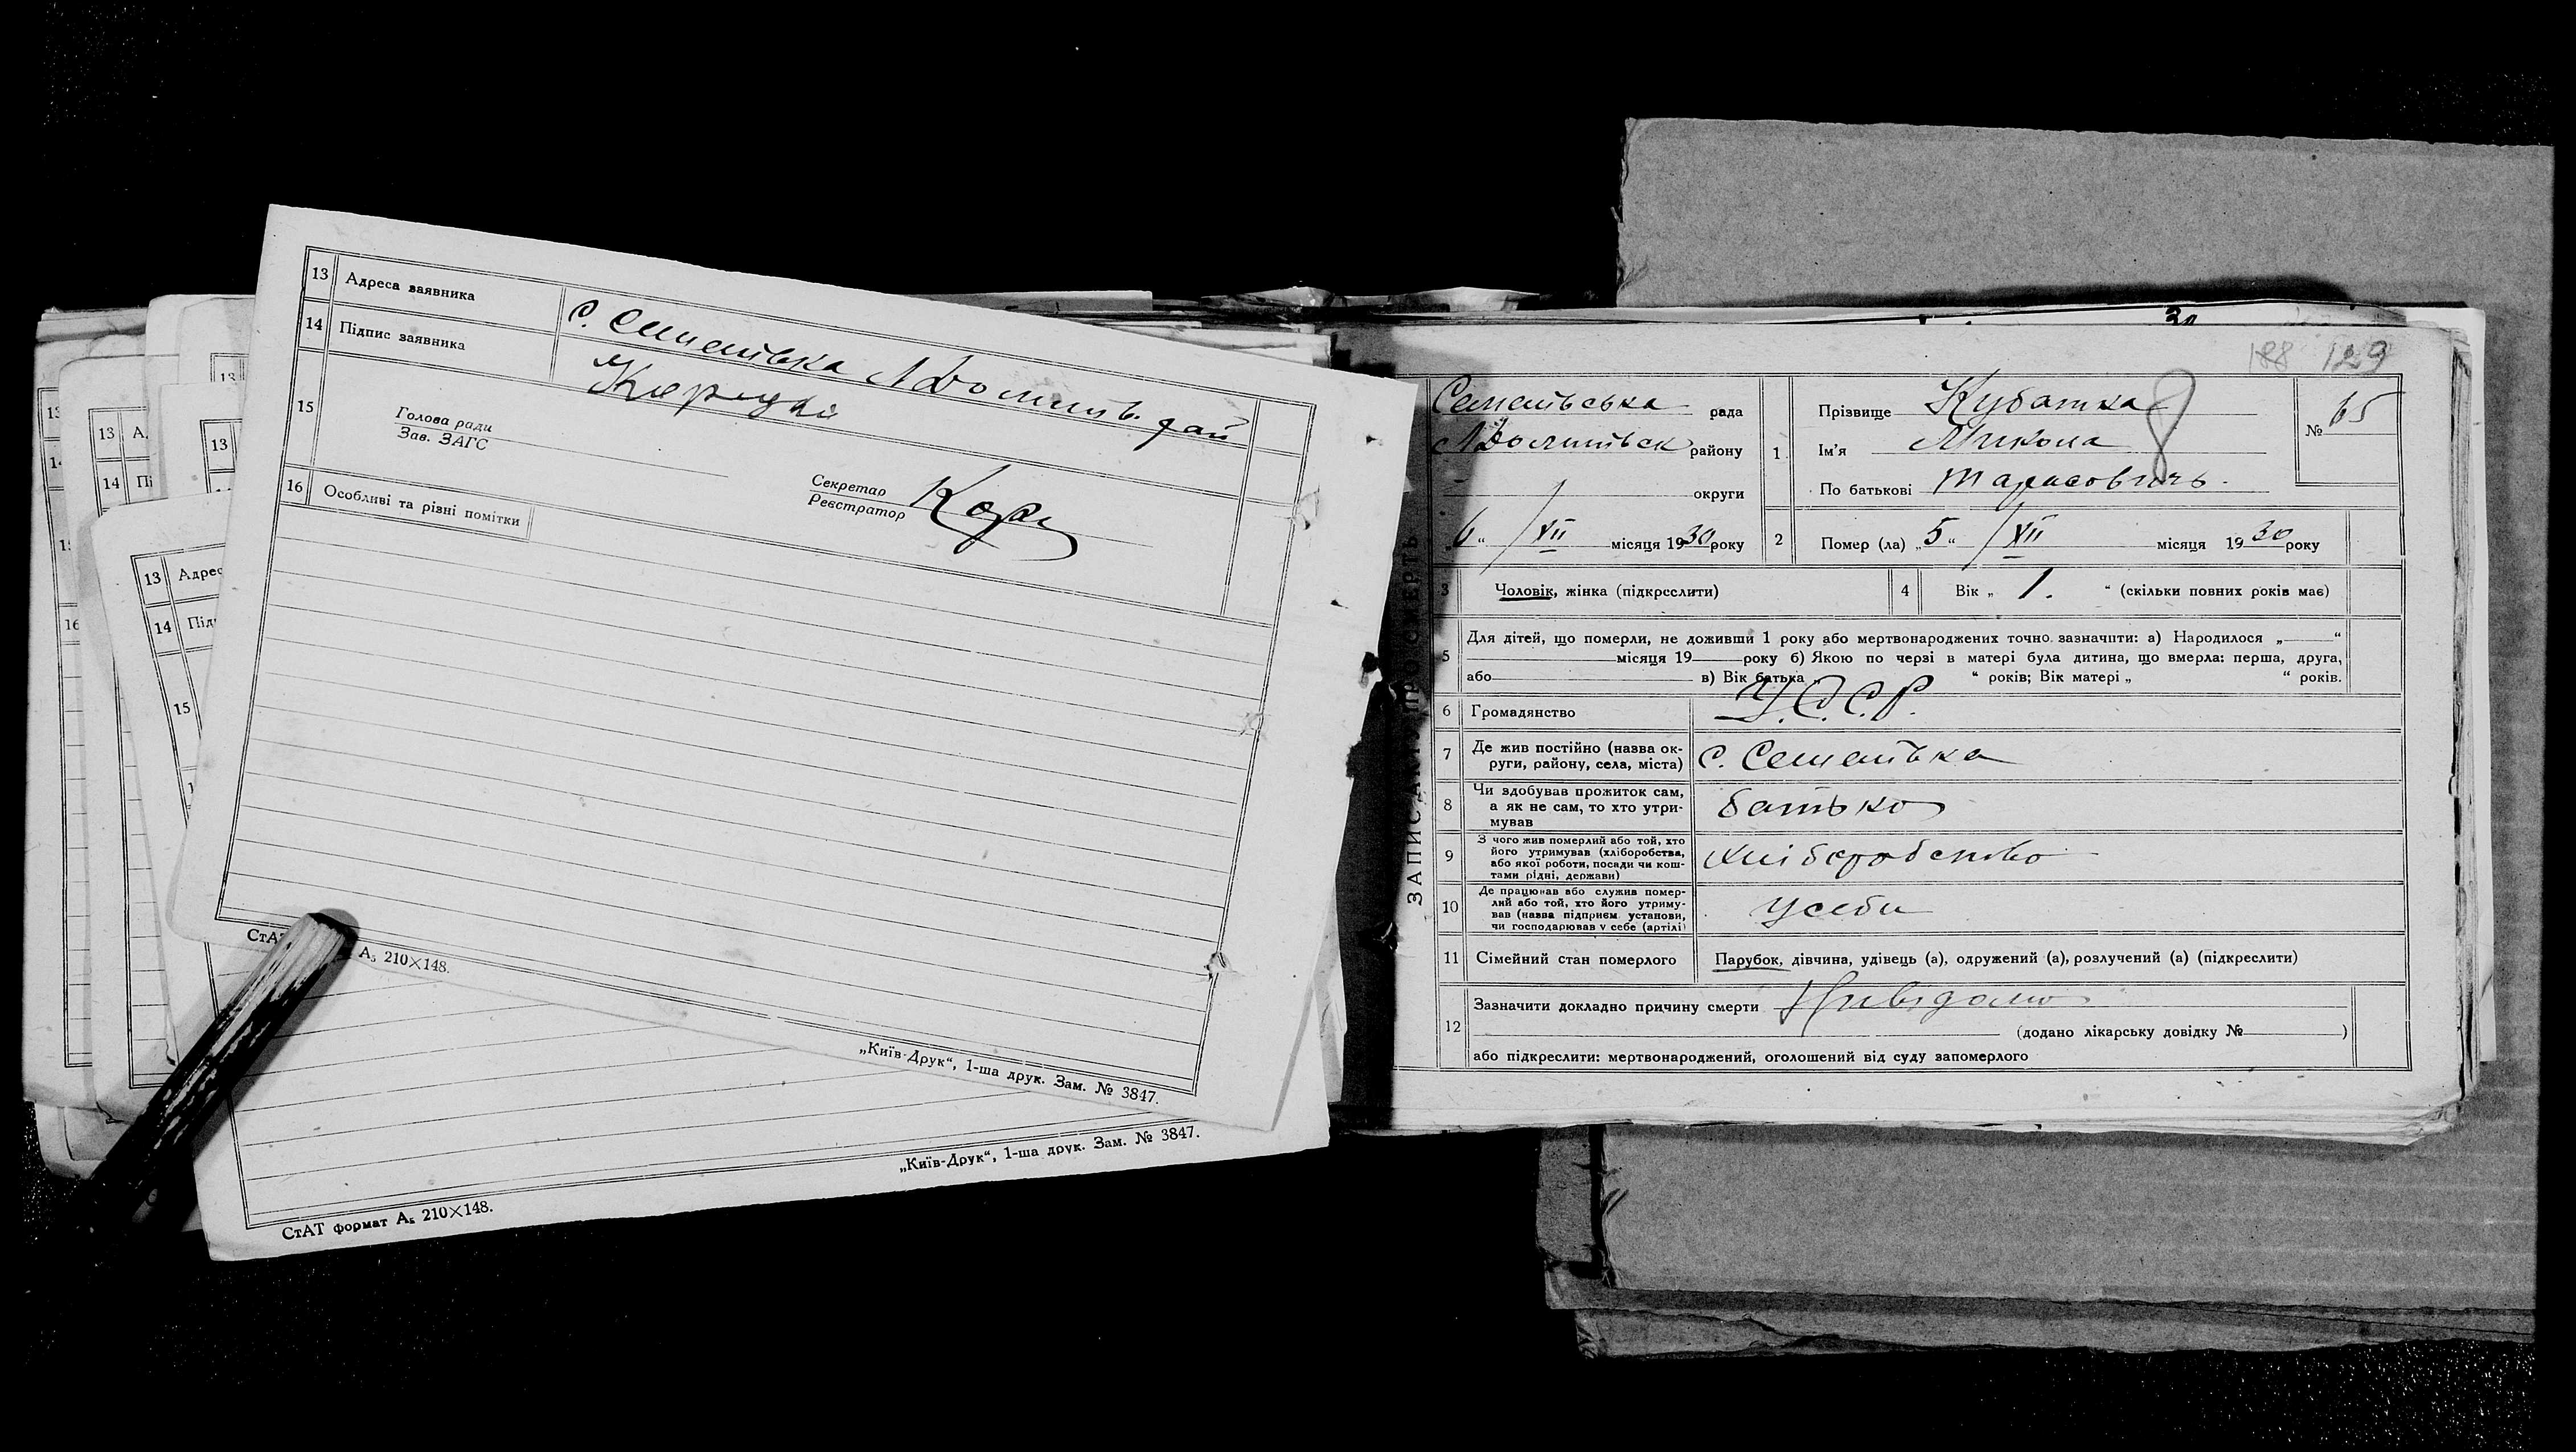 13 Адреса заявника с. Семенівка
14 Підпис заявника
15 Голова ради
Зав. ЗАГС
Секретар
Реєстратор
16 Особливі та різні помітки
А₅ 210×148.
„Київ-Друк“, 1-ша друк. Зам. № 3847.
„Київ-Друк“, 1-ша друк. Зам. № 3847.
СтАТ формат А₅ 210×148.
13
14
15
16
13 А
14 Пі
13
13 Адрес
14 Підп
15
188 129
Семенівська рада
району
округи
„6“ /XII місяця 1930 року
1 Прізвище Кубатка
Ім'я Микола
По батькові Тарасович
№ 65
2 Помер (ла) „5“ /XII місяця 1930 року
3 Чоловік, жінка (підкреслити)
4 Вік „ 1. “ (скільки повних років має)
5 Для дітей, що померли, не доживши 1 року або мертвонароджених точно зазначити: а) Народилося „ “
місяця 19 року б) Якою по черзі в матері була дитина, що вмерла: перша, друга,
або в) Вік батька „ “ років; Вік матері „ “ років.
6 Громадянство У.С.С.Р.
7 Де жив постійно (назва ок-
руги, району, села, міста) с. Семенівка
8 Чи здобував прожиток сам,
а як не сам, то хто утри-
мував батько
9 З чого жив померлий або той, хто
його утримував (хліборобства,
або якої роботи, посади чи кош-
тами рідні, держави) хліборобство
10 Де працював або служив помер-
лий або той, хто його утриму-
вав (назва підприєм. установи,
чи господарював у себе (артілі) усеби
11 Сімейний стан померлого Парубок, дівчина, удівець (а), одружений (а), розлучений (а) (підкреслити)
12 Зазначити докладно причину смерти Нивідомо
(додано лікарську довідку № )
або підкреслити: мертвонароджений, оголошений від суду запомерлого